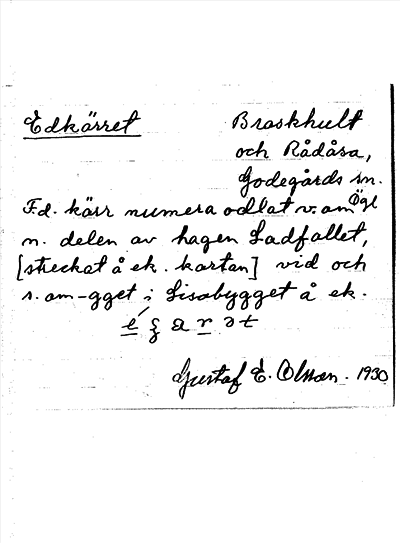 Edkärret Braskhult
och Rådåsa,
Godegårds sn.
Ögl
F.d. kärr numera odlat v. om
n. delen av hagen Ladfallet,
[streckat å ek. kartan] vid och
s. om -gget i Lisabygget å ek.
Gustaf E. Olsson. 1930